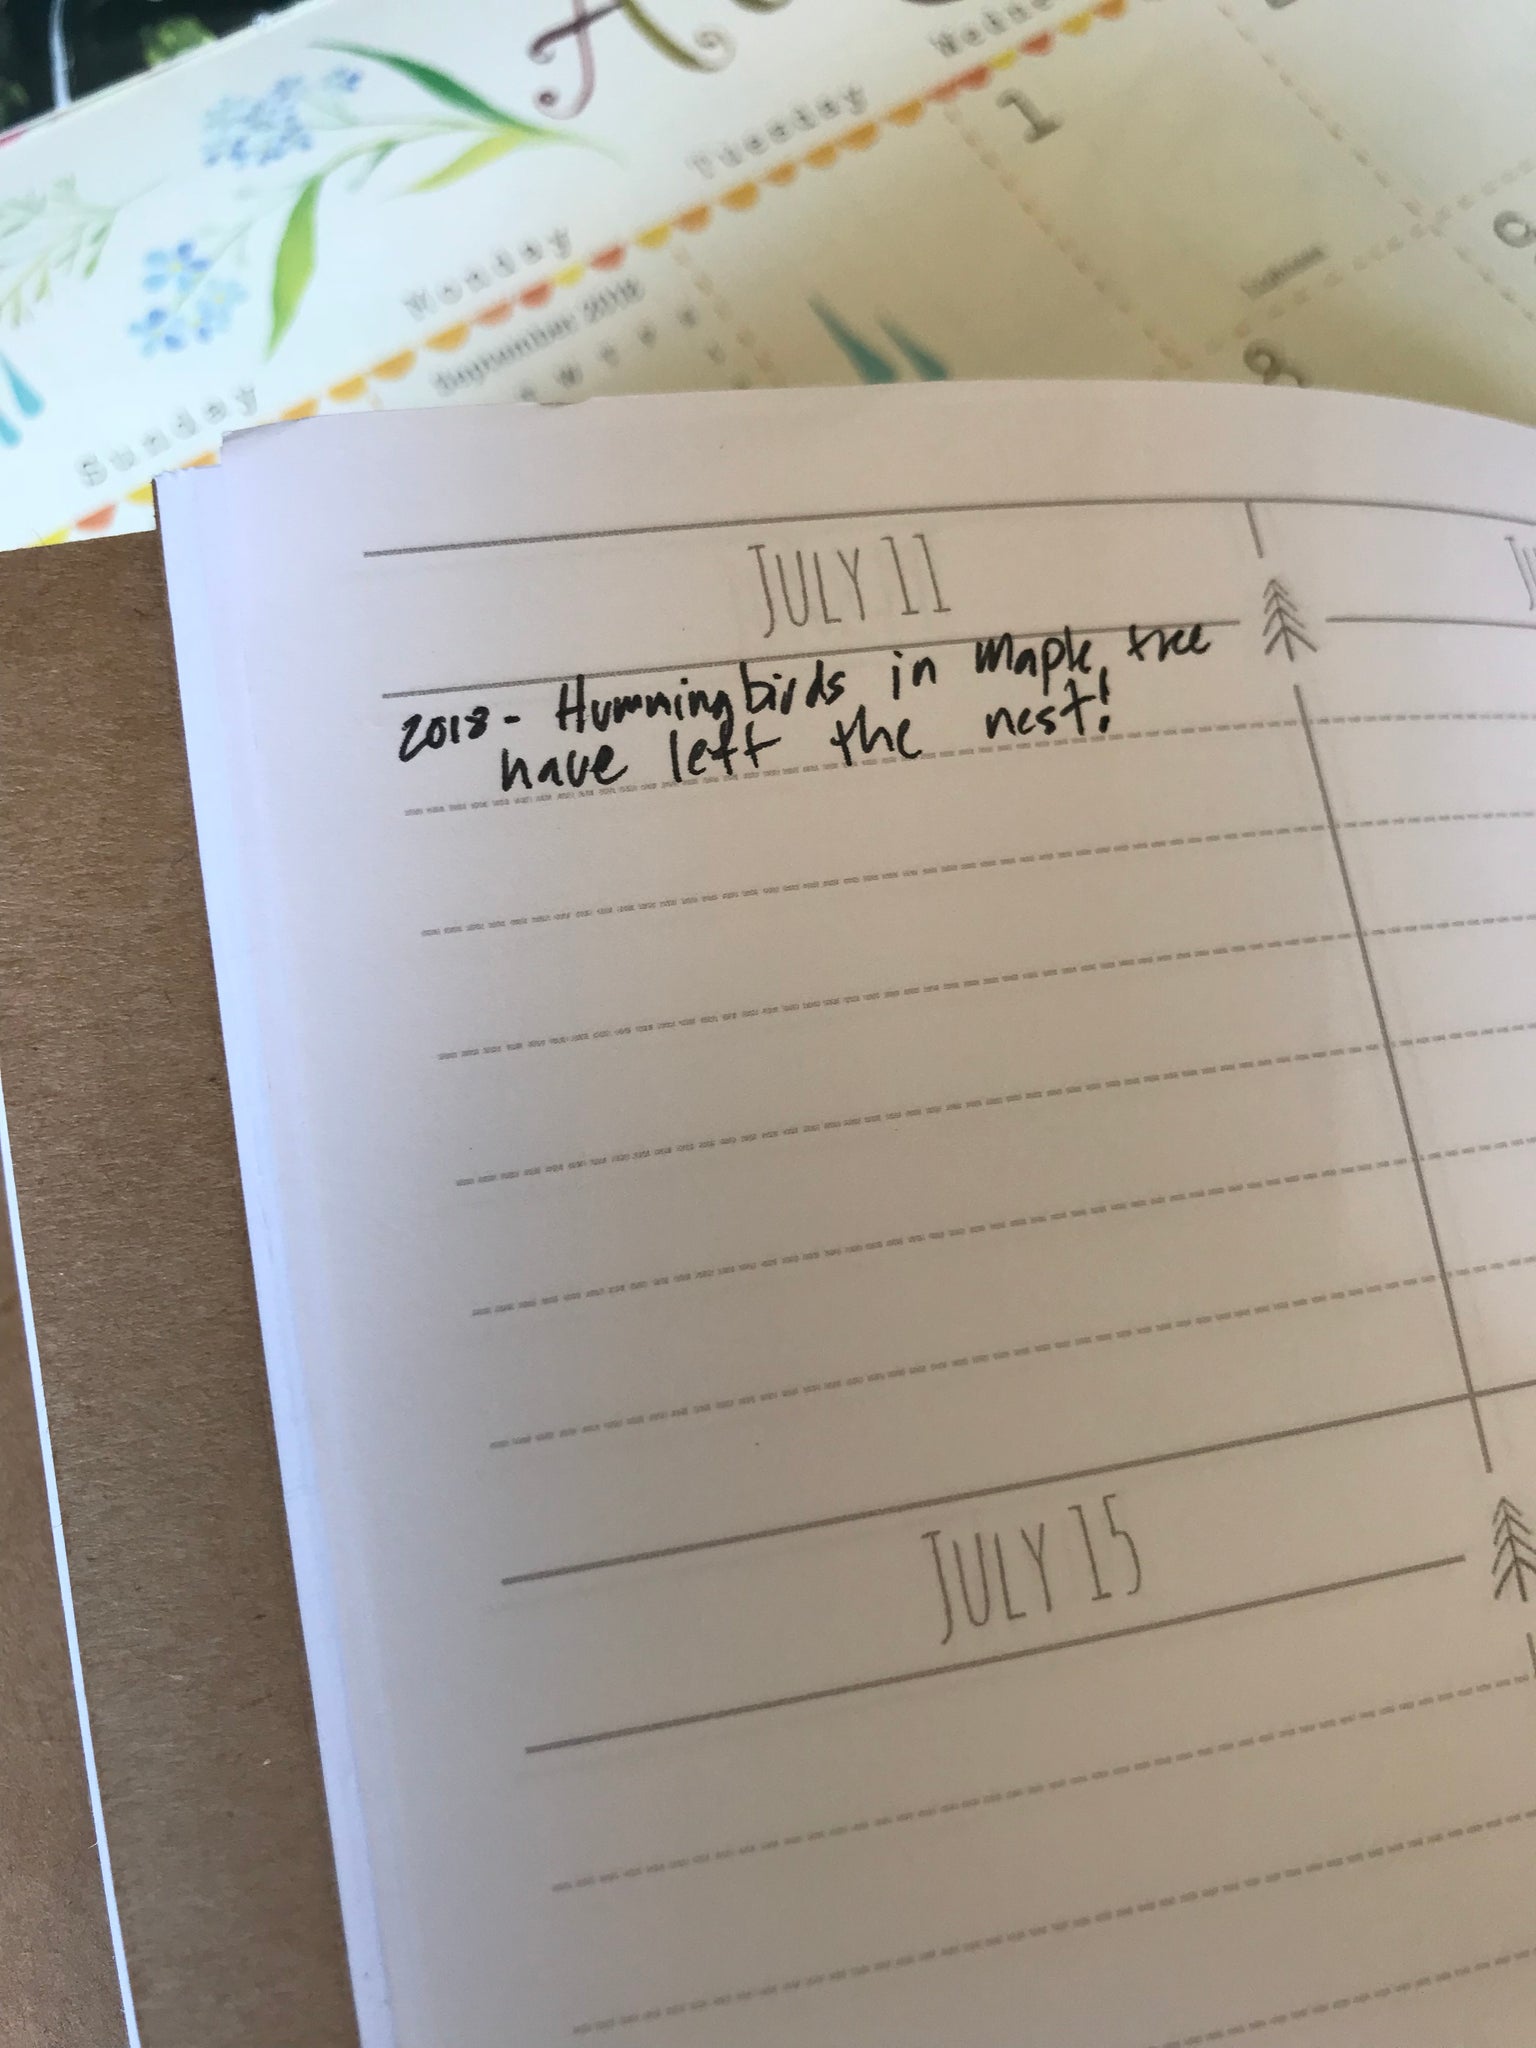 A
Sunday Monday Tuesday
September 2018
1
8
JULY 11
2018 - Hummingbirds in Maple tree
have left the nest!
JULY 15